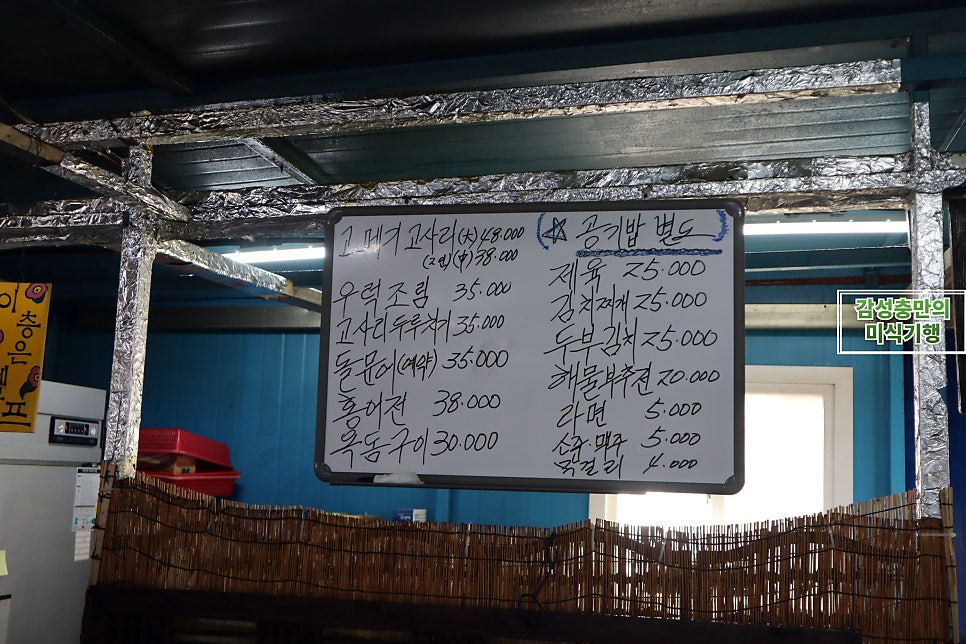 고메기 고사리(大) 48.000
(2인) (中) 38.000
우럭조림 35.000
고사리두루치기 35.000
돌문어(예약) 35.000
홍어전 38.000
옥돔구이 30.000
☆ 공기밥 별도
제육 25.000
김치찌개 25.000
두부김치 25.000
해물부추전 20.000
라면 5.000
소주.맥주 5.000
막걸리 4.000
이
층은
감성충만의
미식기행